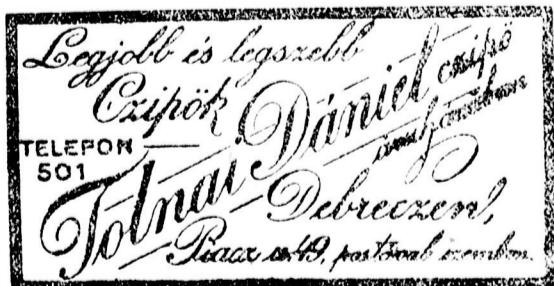 Legjobb és legszebb
Czipők
TELEFON
501
Tolnai Dániel czipő
áruházában
Debreczen,
Piacz u. 49, postával szemben.